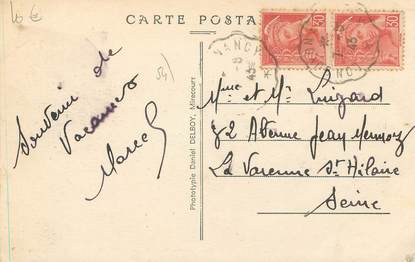 10 €
CARTE POSTA
30
30
54)
Souvenir de
Vacances
Marcel
Phototypie Daniel DELBOY, Mirecourt
Mme et Mr
72 Avenue Jean Mermoz
La Varenne St Hilaire
Seine